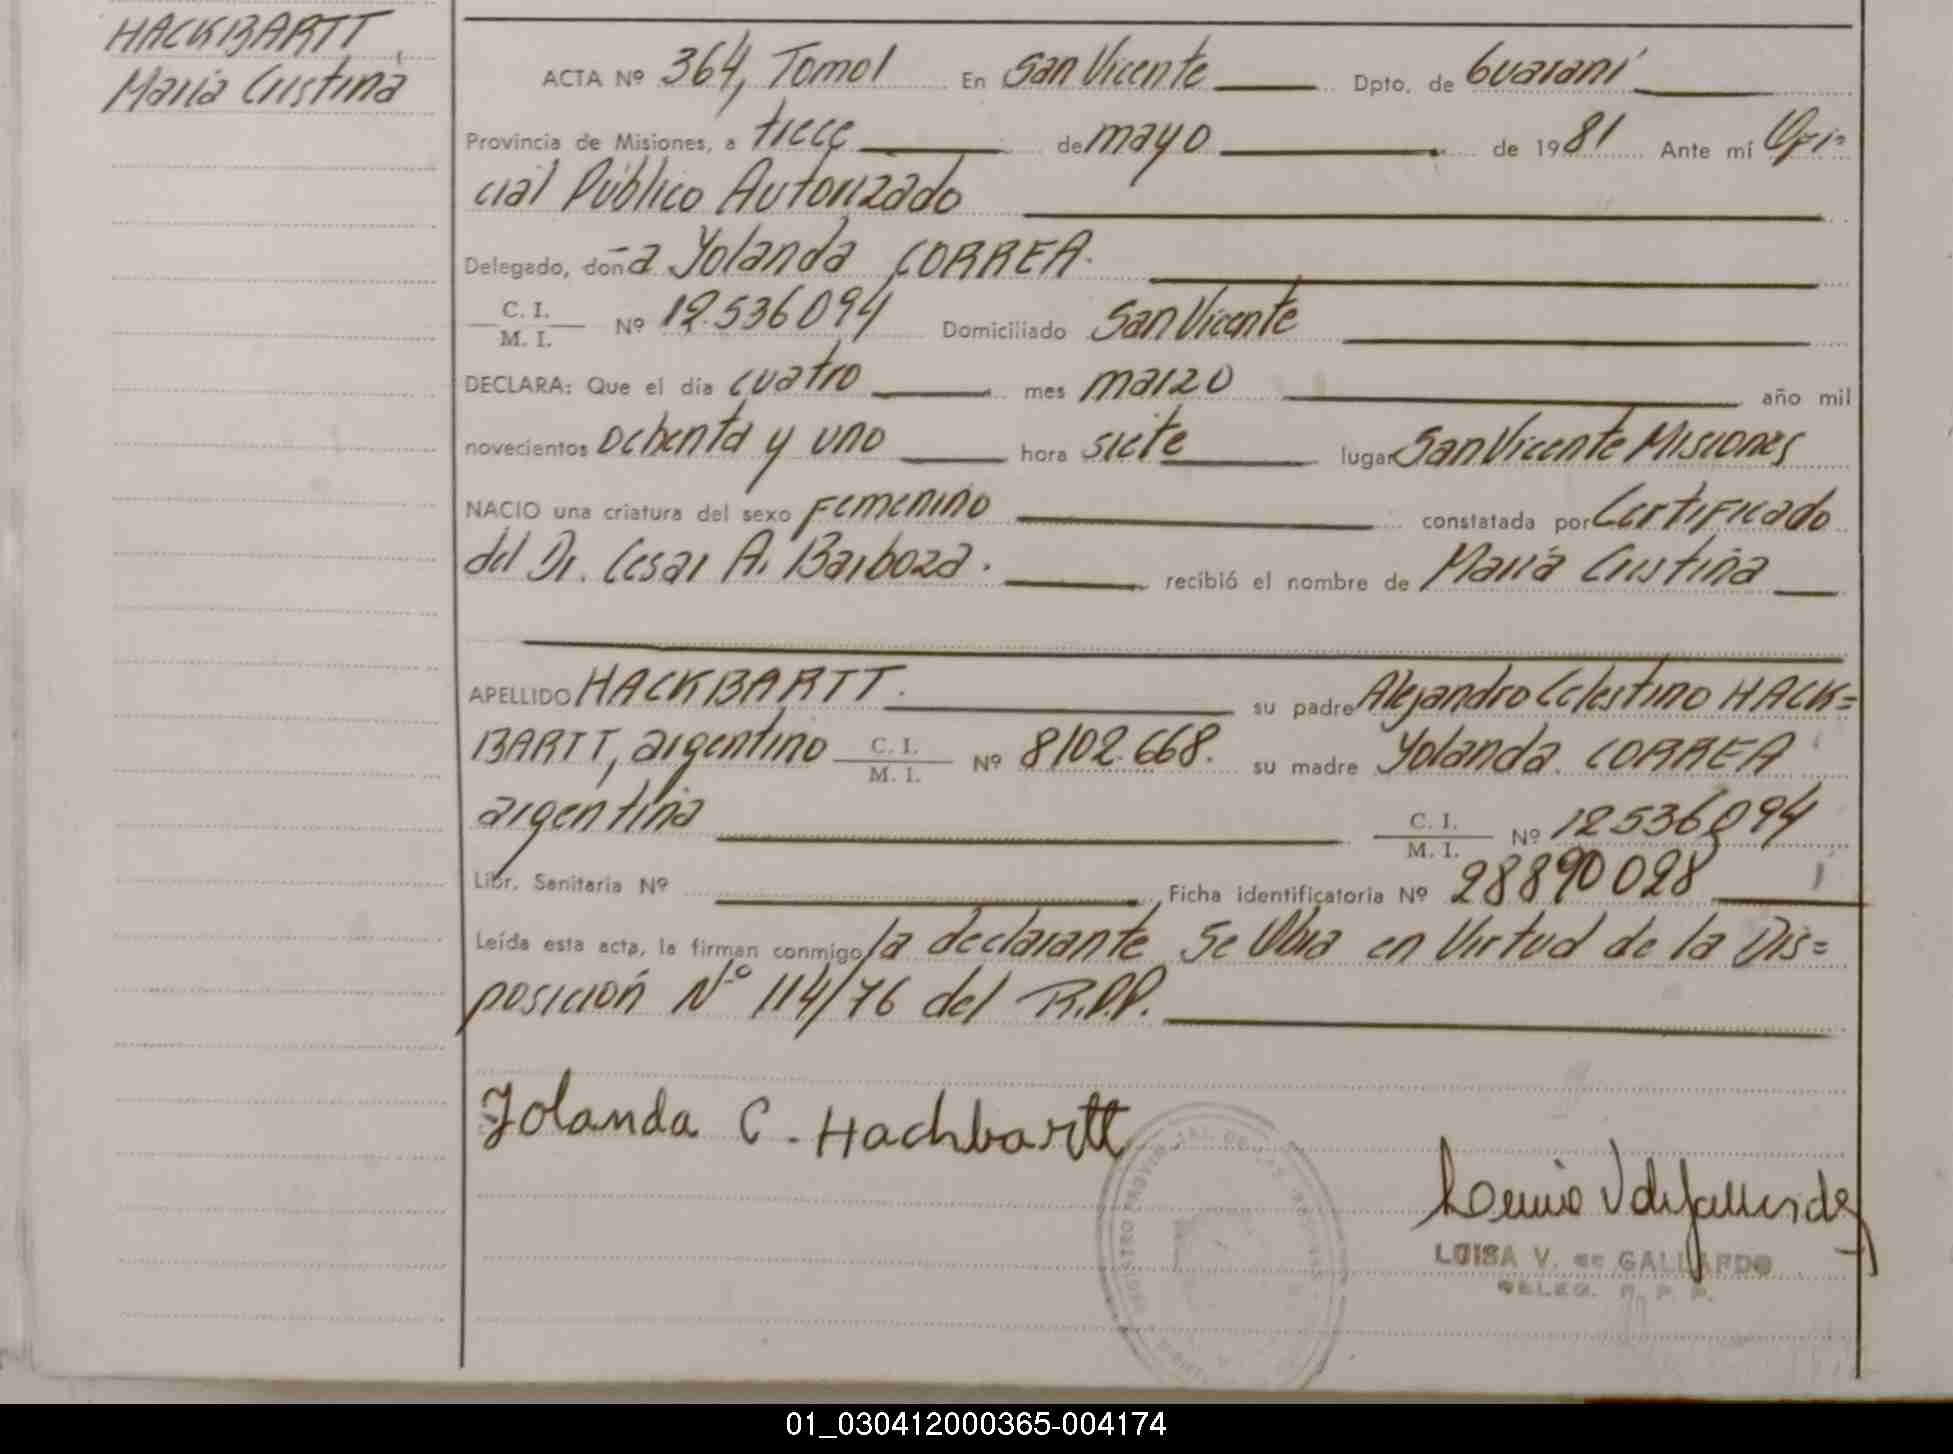 HACKBARTT
María Cristina
ACTA Nº 364, Tomo I En San Vicente Dpto. de Guaraní
Provincia de Misiones, a trece de mayo de 1981 Ante mí Ofi=
cial Público Autorizado
Delegado, doña Yolanda CORREA.
C. I.
M. I. Nº 12.536094 Domiciliado San Vicente
DECLARA: Que el día cuatro mes marzo año mil
novecientos ochenta y uno hora siete lugar San Vicente Misiones
NACIO una criatura del sexo Femenino constatada por Certificado
del Dr. Cesar A. Barboza. recibió el nombre de María Cristina
APELLIDO HACKBARTT. su padre Alejandro Celestino HACK=
BARTT, argentino C. I. M. I. Nº 8102.668. su madre Yolanda CORREA
argentina C. I. M. I. Nº 12536094
Libr. Sanitaria Nº Ficha identificatoria Nº 28890028
Leída esta acta, la firman conmigo la declarante Se Obra en Virtud de la Dis=
posición Nº 114/76 del R.P.P.
Yolanda C. Hachbartt
LUISA V. de GALLARDO
DELEG. R. P. P.
01_030412000365-004174